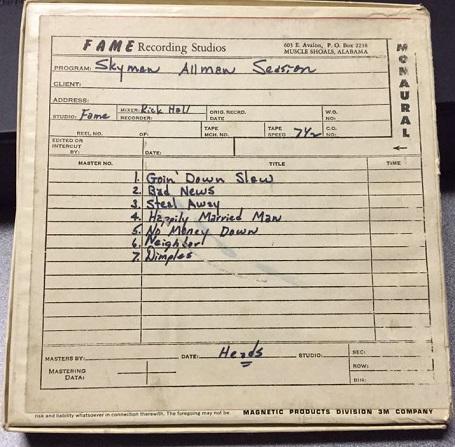 FAME Recording Studios
603 E. Avalon, P. O. Box 2238
MUSCLE SHOALS, ALABAMA
MONAURAL
PROGRAM: Skyman Allman Session
CLIENT:
ADDRESS:
STUDIO: Fame MIXER: Rick Hall RECORDER: ORIG. RECRD. DATE W.O. NO:
REEL NO. OF: TAPE MCH. NO. TAPE SPEED 7½ C.O. NO:
EDITED OR INTERCUT BY: DATE:
MASTER NO. TITLE TIME
1. Goin' Down Slow
2. Bad News
3. Steal Away
4. Happily Married Man
5. No Money Down
6. Neighbor
7. Dimples
MASTERS BY: DATE: Heads STUDIO: SEC:
MASTERING DATA: ROW:
BIN:
risk and liability whatsoever in connection therewith. The foregoing may not be MAGNETIC PRODUCTS DIVISION 3M COMPANY